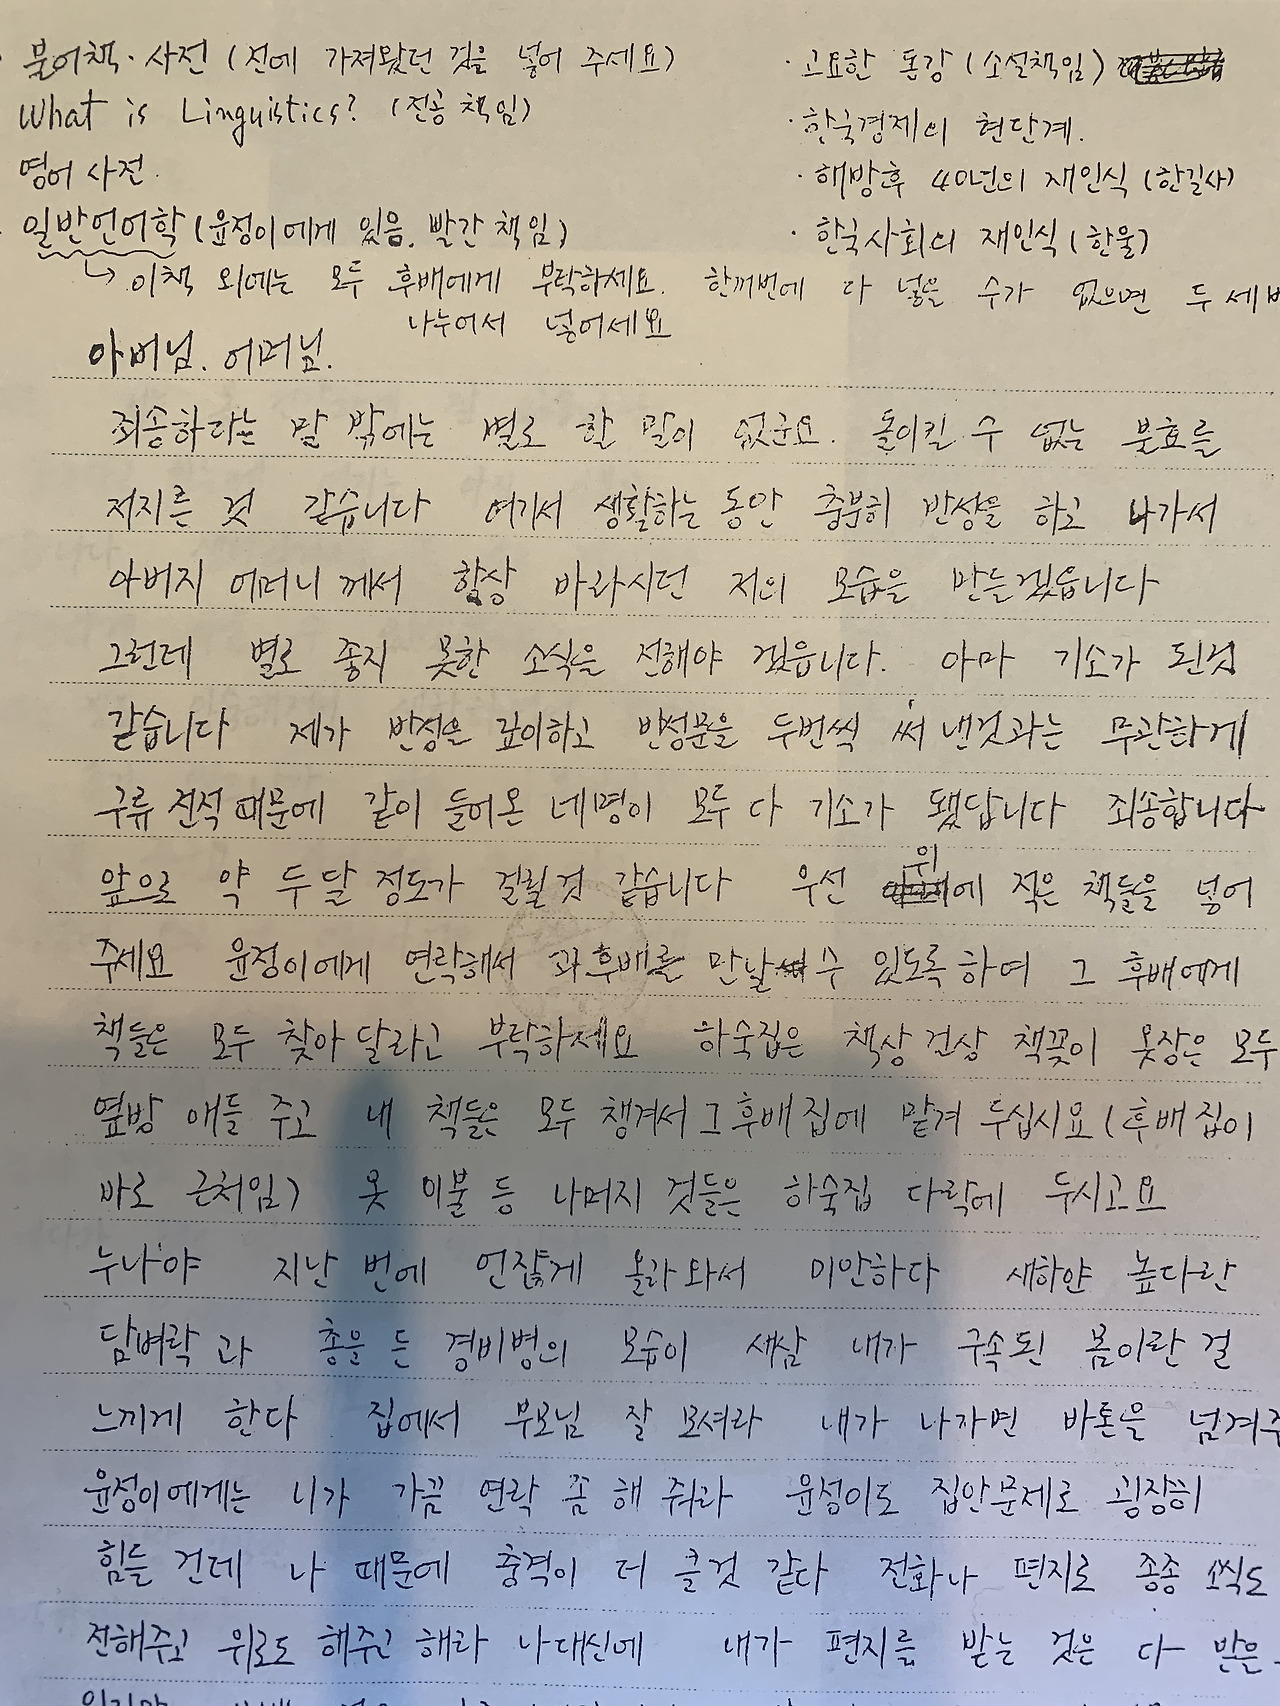 · 불어책 · 사전 (전에 가져왔던 것을 넣어 주세요)
What is Linguistics? (전공 책임)
영어 사전.
· 일반언어학 (윤정이에게 있음. 빨간 책임)
· 고요한 돈강 (소설책임)
· 한국경제의 현단계.
· 해방후 40년의 재인식 (한길사)
· 한국사회의 재인식 (한울)
↳ 이책 외에는 모두 후배에게 부탁하세요. 한꺼번에 다 넣을 수가 없으면 두 세번
나누어서 넣어세요
아버님. 어머님.
죄송하다는 말 밖에는 별로 할 말이 없군요. 돌이킬 수 없는 불효를
저지른 것 같습니다 여기서 생활하는 동안 충분히 반성을 하고 나가서
아버지 어머니 께서 항상 바라시던 저의 모습을 만들겠읍니다
그런데 별로 좋지 못한 소식을 전해야 겠읍니다. 아마 기소가 된것
같습니다 제가 반성을 깊이하고 반성문을 두번씩 써 낸것과는 무관하게
구류 전적 때문에 같이 들어온 네명이 모두 다 기소가 됐답니다 죄송합니다
앞으로 약 두 달 정도가 걸릴것 같습니다 우선 위에 적은 책들을 넣어
주세요 윤정이에게 연락해서 과후배를 만날 수 있도록 하여 그 후배에게
책들은 모두 찾아 달라고 부탁하세요 하숙집은 책상 걸상 책꽂이 옷장은 모두
옆방 애들 주고 내 책들은 모두 챙겨서 그 후배 집에 맡겨 두십시요 (후배 집이
바로 근처임) 옷 이불 등 나머지 것들은 하숙집 다락에 두시고요
누나야 지난 번에 언잖게 올라 와서 미안하다 새하얀 높다란
담벼락 과 총을 든 경비병의 모습이 새삼 내가 구속된 몸이란 걸
느끼게 한다 집에서 부모님 잘 모셔라 내가 나가면 바톤을 넘겨주
윤정이에게는 니가 가끔 연락 좀 해 줘라 윤정이도 집안문제로 굉장히
힘들 건데 나 때문에 충격이 더 클것 같다 전화나 편지로 종종 소식도
전해주고 위로도 해주고 해라 나대신에 내가 편지를 받는 것은 다 받은